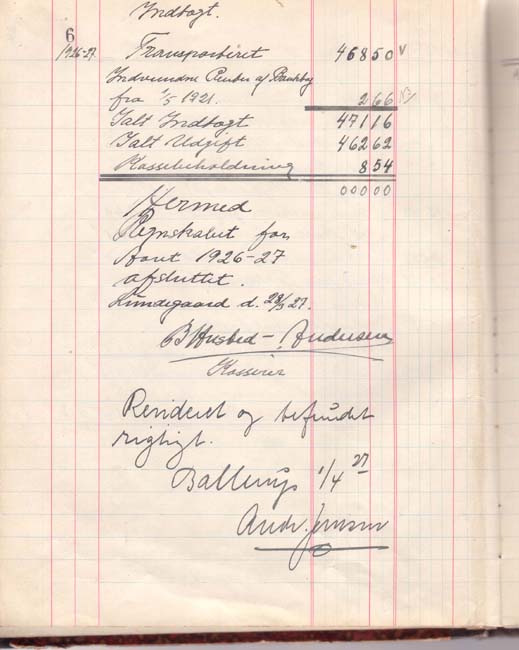 Indtægt.
6
1926-27. Transporteret 46850 V
Indvundne Renter af Bankbog
fra 1/5 1921. 266
Ialt Indtægt 47116
Ialt Udgift 46262
Kassebeholdning 854
00000
Hermed
Regnskabet for
Aaret 1926-27
afsluttet.
Lundegaard d. 28/3 27.
B Husted - Andersen
Kasserer
Revideret og befundet
rigtigt.
Ballerup 1/4 27
Andr. Jensen